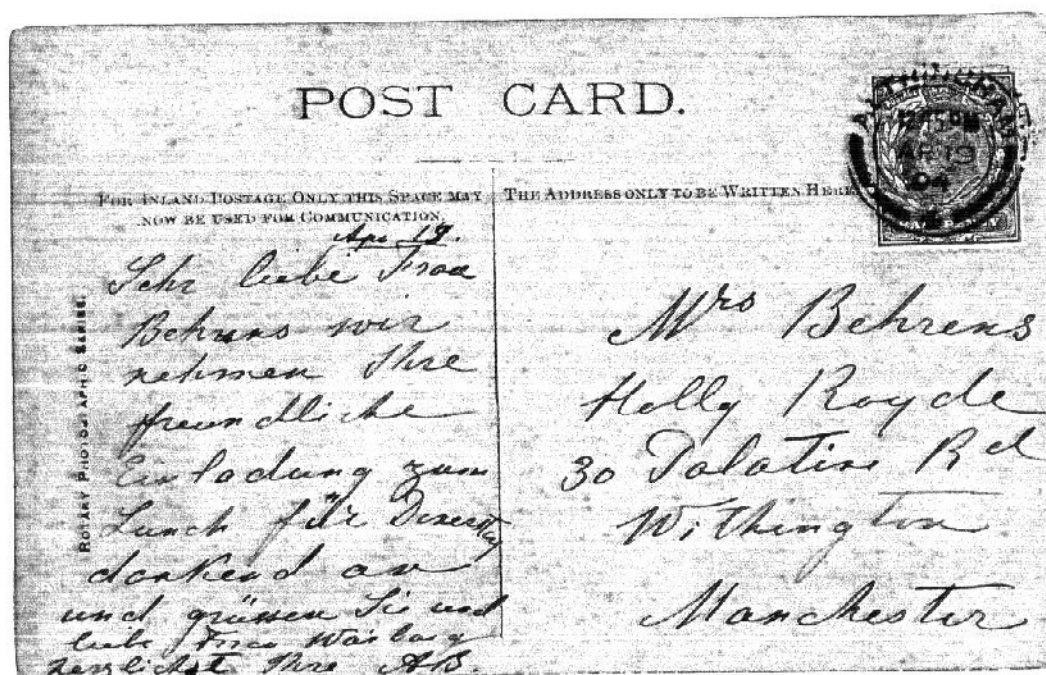 POST CARD.
FOR INLAND POSTAGE ONLY THIS SPACE MAY
NOW BE USED FOR COMMUNICATION.
THE ADDRESS ONLY TO BE WRITTEN HERE
ROTARY PHOTOGRAPHIC SERIES.
Apr 19.
Sehr liebe Frau
Behrens wir
nehmen Ihre
freundliche
Einladung zum
Lunch für Dienstag
dankend an
und grüssen Sie und
liebe Frau Warburg
herzlichst Ihre AB.
ALTRINCHAM
AP 19
04
Mrs Behrens
Holly Royde
30 Palatine Rd
Withington
Manchester